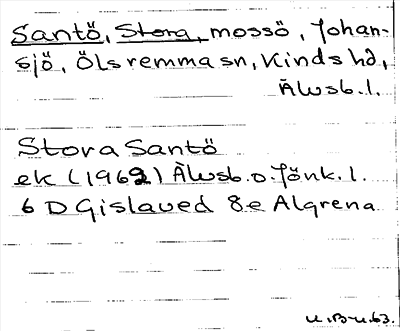 Santö, Stora, mossö, Johan-
sjö, Ölsremma sn, Kinds hd,
Älvsb. l.
Stora Santö
ek (1962) Älvsb. o. Jönk. l.
6 D Gislaved 8e Algrena